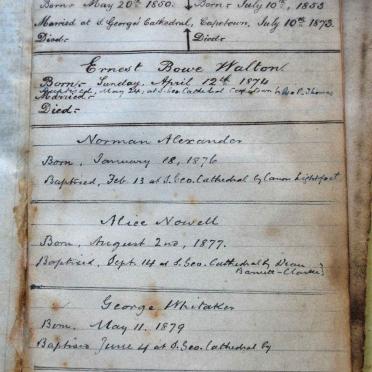 Born:- May 20th 1850. Born:- July 10th, 1853
Married at S. George's Cathedral, Capetown, July 10th 1873.
Died:- Died:-
Ernest Bowe Walton.
Born:- Sunday, April 12th 1874
Baptised, May 24, at S. Geo. Cathedral Capetown by
Married:-
Died:-
Norman Alexander
Born, January 18, 1876
Baptised, Feb 13 at S. Geo. Cathedral by Canon Lightfoot
Alice Nowell
Born, August 2nd, 1877.
Baptised, Sept. 14 at S. Geo. Cathedral by Dean
Barnett-Clarke]
George Whitaker
Born, May 11. 1879
Baptised June 4 at S. Geo. Cathedral by